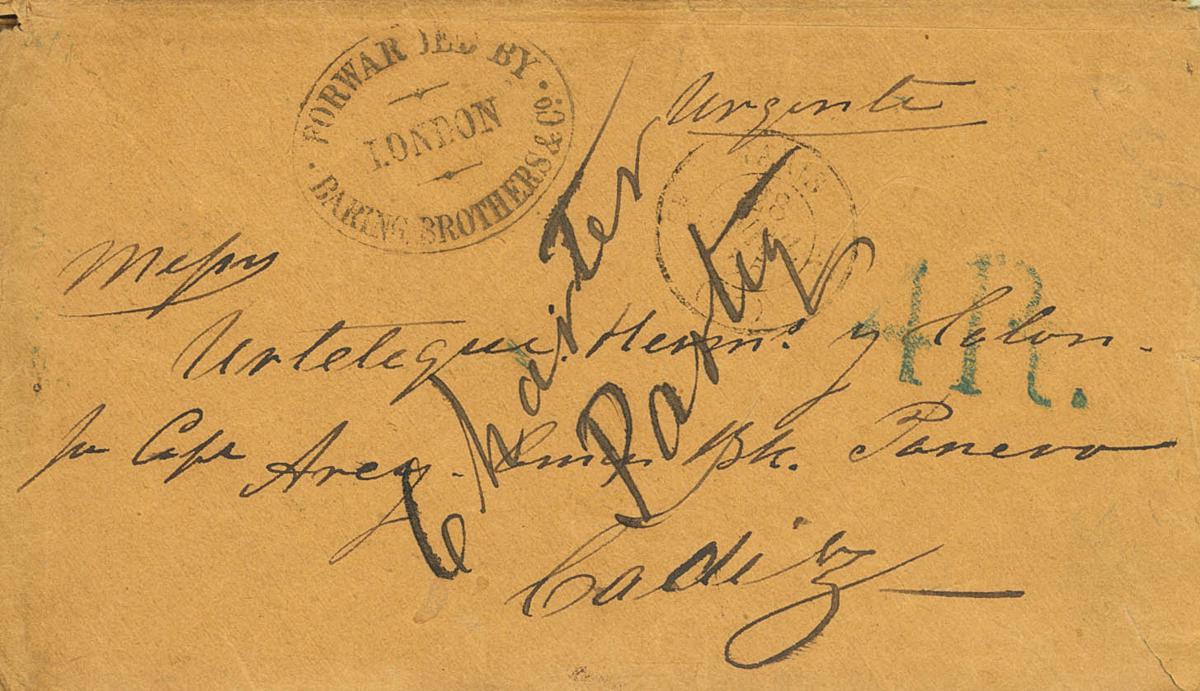 FORWARDED BY
LONDON
BARING BROTHERS & Co.
Urgente
PARIS
Messrs
Urtetegui. Herms. y Colon.
4R.
pr Capt Arey. Amn Bk. Panevo
Cadiz
Charter Party